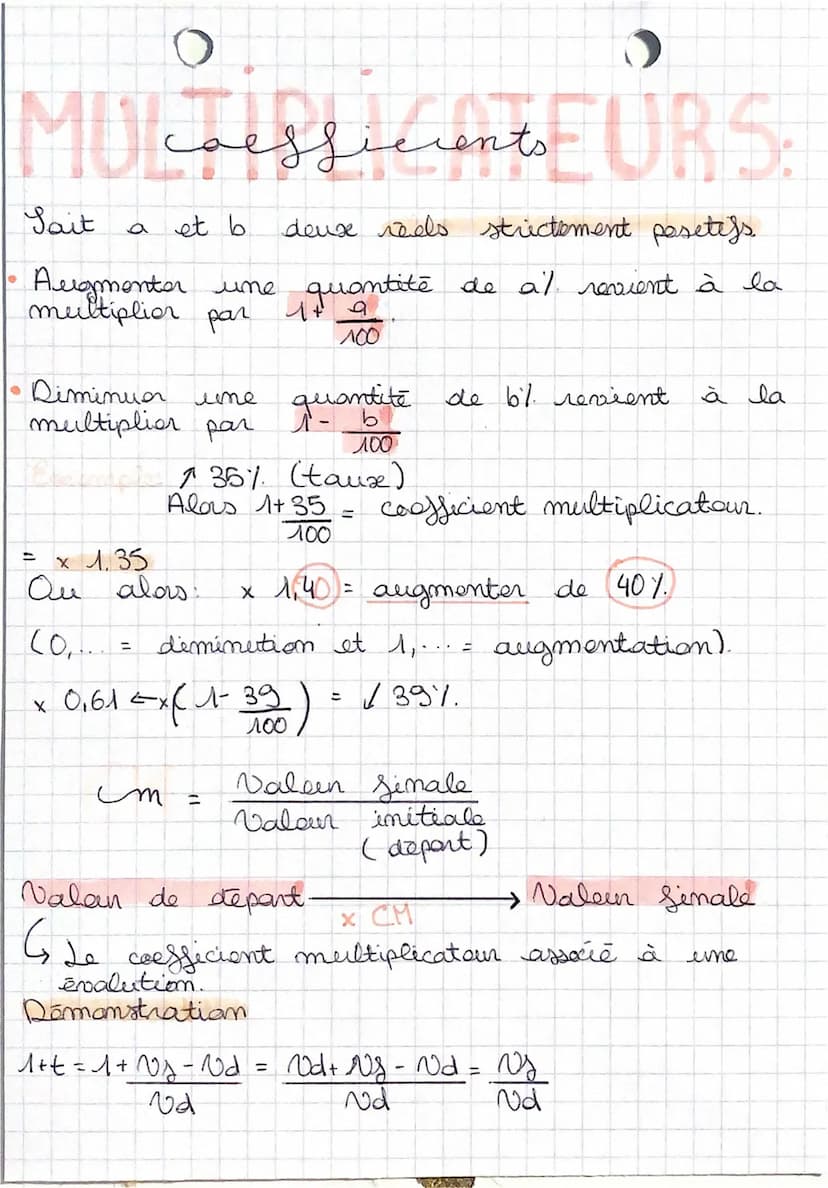 MULTIPLICATEURS:
coefficients
Soit a et b deux réels strictement positifs.
• Augmenter une quantité de a% revient à la
multiplier par 1 + a/100.
• Diminuer une quantité de b% revient à la
multiplier par 1 - b/100
Exemple: ↗ 35% (taux)
Alors 1 + 35/100 = coefficient multiplicateur.
= x 1,35
Ou alors: x 1,40 = augmenter de 40%.
(0,... = diminution et 1,... = augmentation).
x 0,61 ← x(1 - 39/100) = ↙ 39%.
Cm = Valeur finale / Valeur initiale
(départ)
Valeur de départ → Valeur finale
x CM
↳ Le coefficient multiplicateur associé à une
évolution.
Démonstration
1+t = 1 + Vf - Vd / Vd = Vd + Vf - Vd / Vd = Vf / Vd